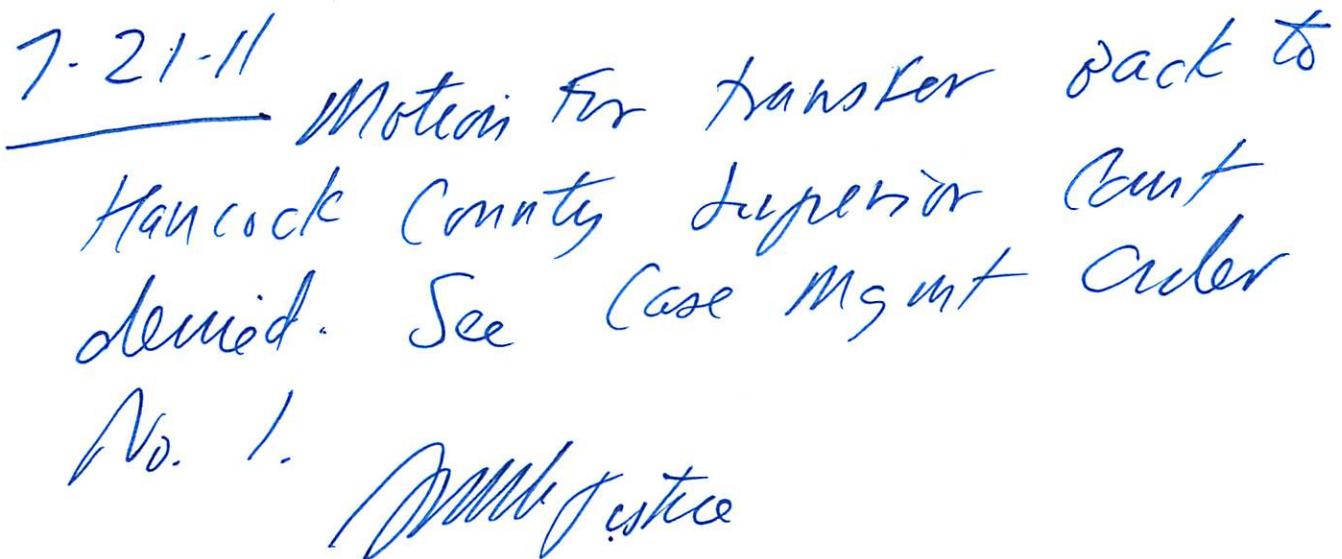 7-21-11
Motion for transfer back to
Hancock County Superior Court
denied. See Case Mgmt Order
No. 1.
Justice